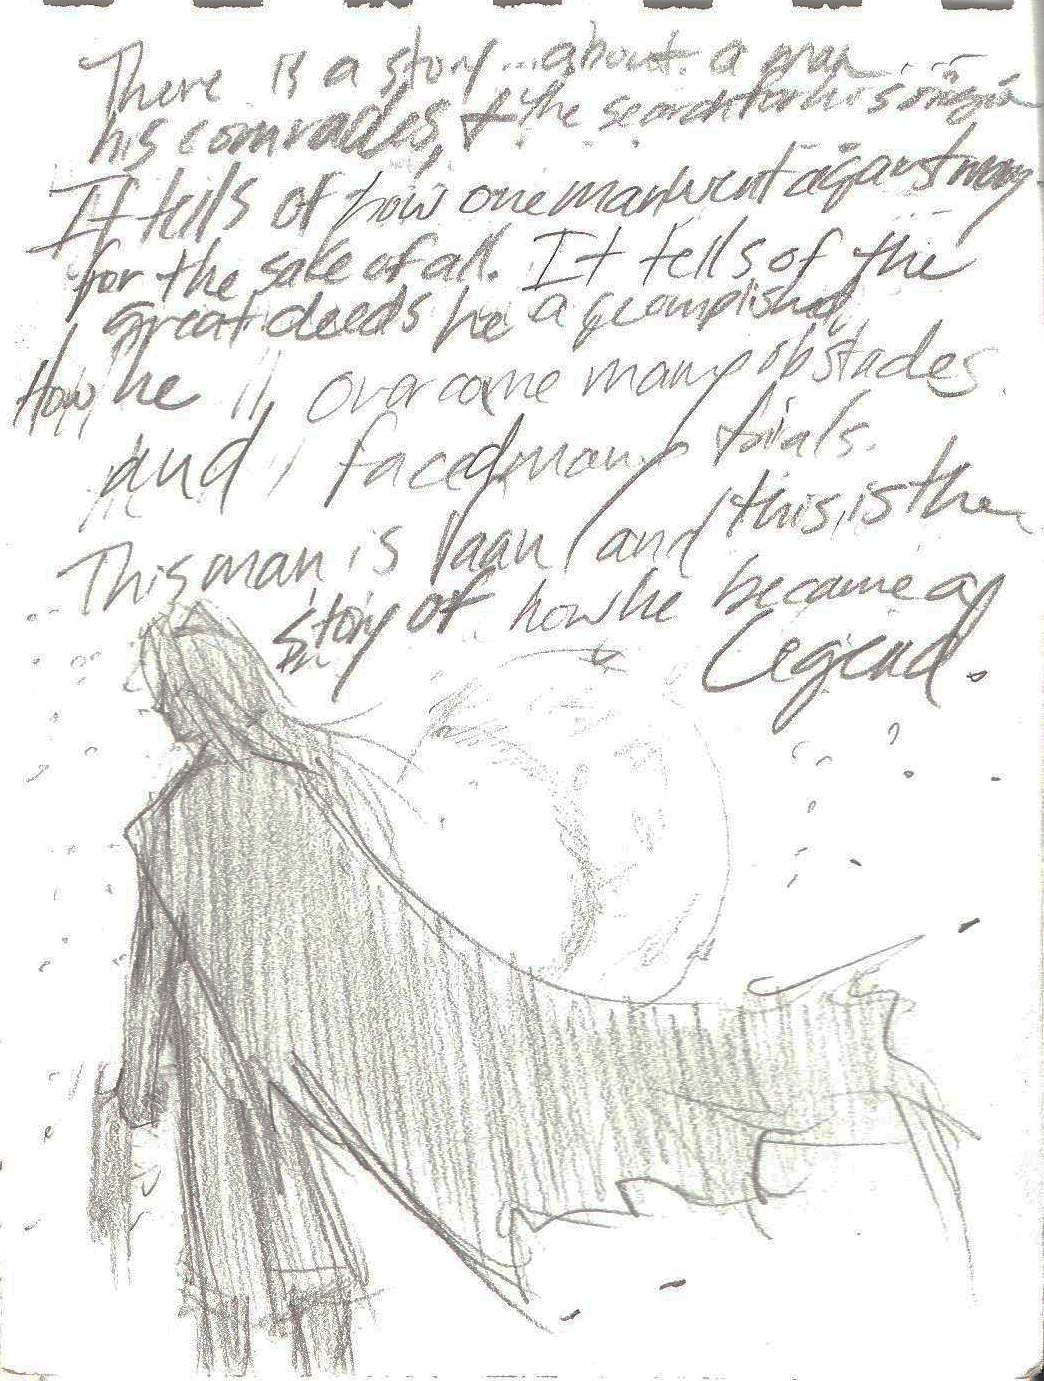 There is a story... about a man...
his comrades, & the search for his origin
It tells of how one man went against many
for the sake of all. It tells of the
great deeds he acomplished
How he overcame many obstacles.
and faced many trials.
This man is Vaan and this is the
story of how he became a
Legend.